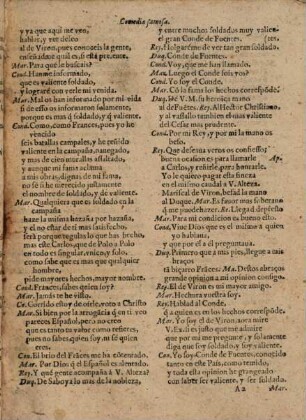 Comedia famosa.
y ya que aqui me veo,
hablar, y ver deseo
al de Viron, pues conoceis la gente,
enseñadme qual es, si està presente.
Mar. Para que le buscais?
Cond. Hanme informado,
que es valiente soldado,
y lograrè con verle mi venida.
Mar. Malos han informado por mi vida
si de esso os informaron solamente,
porque es mas q̃ soldado, y q̃ valiente.
Cond. Como, como Frances, pues yo he
vencido
seis batallas campales, y he reñido
valiente en la campaña,
y mas de cien murallas assaltado,
y aunque mi fama aclama
a mis obras, dignas de mi fama,
no se si he merecido justamente
el nombre de soldado, y de valiente.
Mar. Qualquiera que es soldado en la
campaña
haze la misma hazaña por hazaña,
y el no estar de mi mas satisfecho,
serà porque teneis lo que has hecho,
mas este Carlos, que de Polo a Polo
en todo es singular, mirad y solo,
assi como es mas que qualquier
hombre,
pide mayores hechos, mayor nombre.
Cond. Frances, sabes quien soy?
Mar. Jamàs te he visto.
Co. Corrido estoy de oirte, voto a Christo
Mar. Si bien por la arrogãcia q̃ en ti veo
pareces Español, pero no creo
que es tanto tu valor como refieres,
pues no sabes quien soy, ni sè quien
eres.
Con. El brio del Frãces me ha cõtentado.
Mar. Por Dios q̃ el Español es alentado.
Rey. Y que gente acompaña a V. Alteza?
Duq. De Saboya lo mas de la nobleza,
y entre muchos soldados muy valien-
Rey. Holgarème de ver tan gran soldado.
Duq. Conde de Fuentes.
Cond. Voy, que me han llamado.
Mar. Luego el Conde sois vos?
Cond. Yo soy el Conde.
Mar. Cõ la fama los hechos corrõspõde.
Duq. Dè V. M. su heroica mano
al de Fuentes.
y al rasfallo tambien el mas valiente
el Cesar mas prudente.
Con. Por mi Rey, y por mi la mano os
beso.
Rey. Que desea veros os confiesso:
buena ocasion es para llamarle
a Carlos, y reñirle, para honrarle.
Yo le quiero pagar esta fineza
en el mismo caudal a V. Alteza.
Mariscal de Viron, besad la mano
al Duque. Mar. Es favor mas soberano
que pude merecer. Re. Llegad depõsto
Mar. Para mi condicion es bueno esto.
Con. Vive Dios que es el mismo a quien
yo hablava,
y que por èl a èl preguntava.
Duq. Primero que a mis pies, llegue a mis
braços
tã bizarro Frãces. Ma. Destos abraços
grande opinion a mi opinion consigo.
Rey. El de Viron es mi mayor amigo.
Mar. Hechura vuestra soy.
Rey. Hablad al Conde.
q̃ a quien es en los hechos corresponde.
Mar. Yo soy el de Viron aora mire
V. Ex. si es justo que me admire
que por mi me pregunte, y juzgando
el diga que solo fue valiente.
Con. Yo soy el Conde de Fuentes, conocido
tanto en este Pais, como temido,
y toda essa opinion he grangeado
con saber ser valiente, y ser soldado.
A 2
Mar.